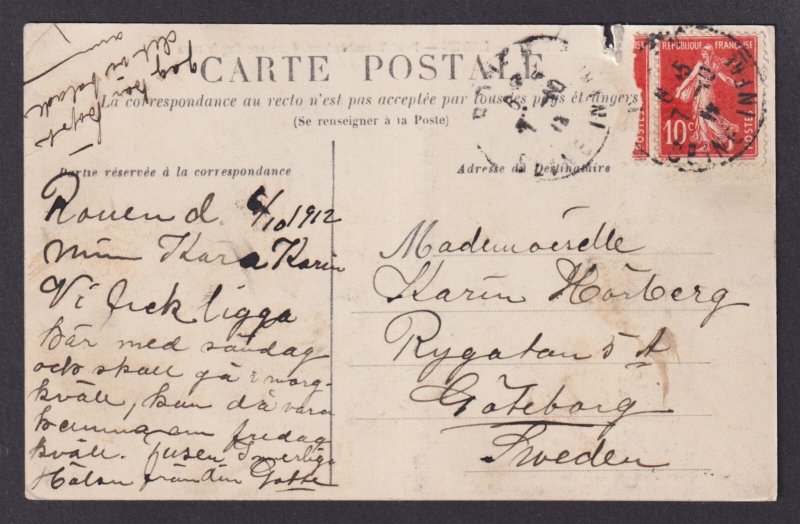 CARTE POSTALE
La correspondance au recto n'est pas acceptée par tous les pays étrangers
(Se renseigner à la Poste)
Partie réservée à la correspondance
Adresse du Destinataire
RÉPUBLIQUE FRANÇAISE
10c
POSTES
Rouen d. 6/10 1912
Min Kära Karin
Vi fick ligga
här med söndag
och skall gå i morg-
kväll, kan då vara
hemma om fredag
kväll. Tusen innerliga
Hälsn från din Gotte
Mademoiselle
Karin Hörberg
Rygatan 5 A
Göteborg
Sweden